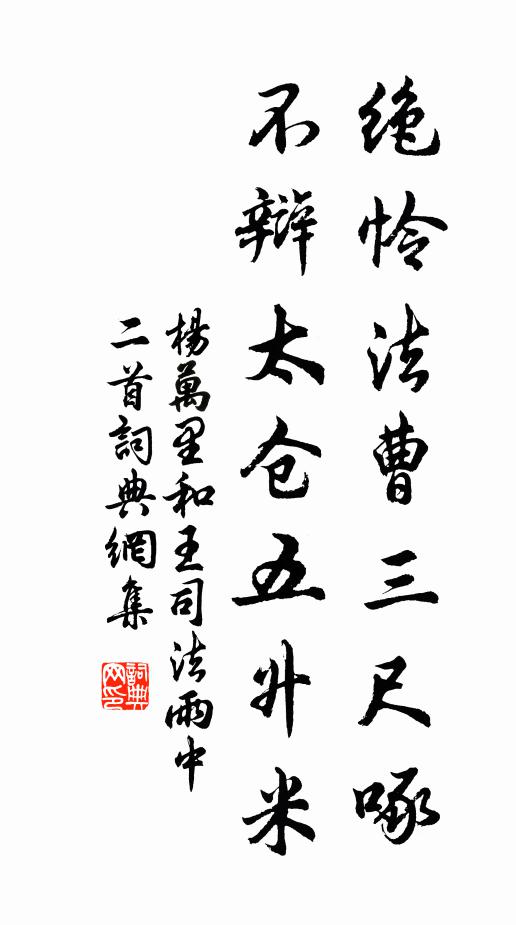 绝怜法曹三尺啄
不辩太仓五升米
楊萬里和王司法雨中
二首詞典網集
詞典网印